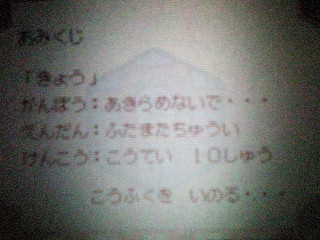 おみくじ
「きょう」
がんぼう：あきらめないで・・・
えんだん：ふたまたちゅうい
けんこう：こうてい　１０しゅう
こうふくを　いのる・・・